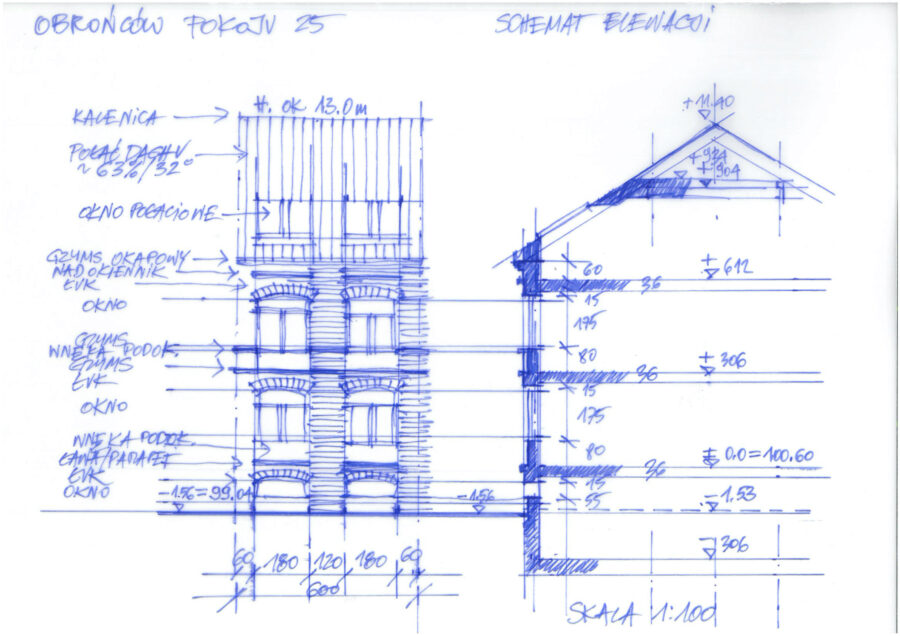 OBROŃCÓW POKOJU 25
SCHEMAT ELEWACJI
H. OK 13.0m
KALENICA
POŁAĆ DACHU
~ 63%/32°
OKNO POŁACIOWE
GZYMS OKAPOWY
NADOKIENNIK
ŁUK
OKNO
GZYMS
WNĘKA PODOK.
GZYMS
ŁUK
OKNO
WNĘKA PODOK.
ŁAWA/PARAPET
ŁUK
OKNO
-1.56=99.04
-1.56
60 180 120 180 60
600
+11.40
+904
60
+ 612
36
15
175
80
+ 306
36
15
175
80
± 0.0=100.60
36
15
55
-1.53
-306
SKALA 1:100